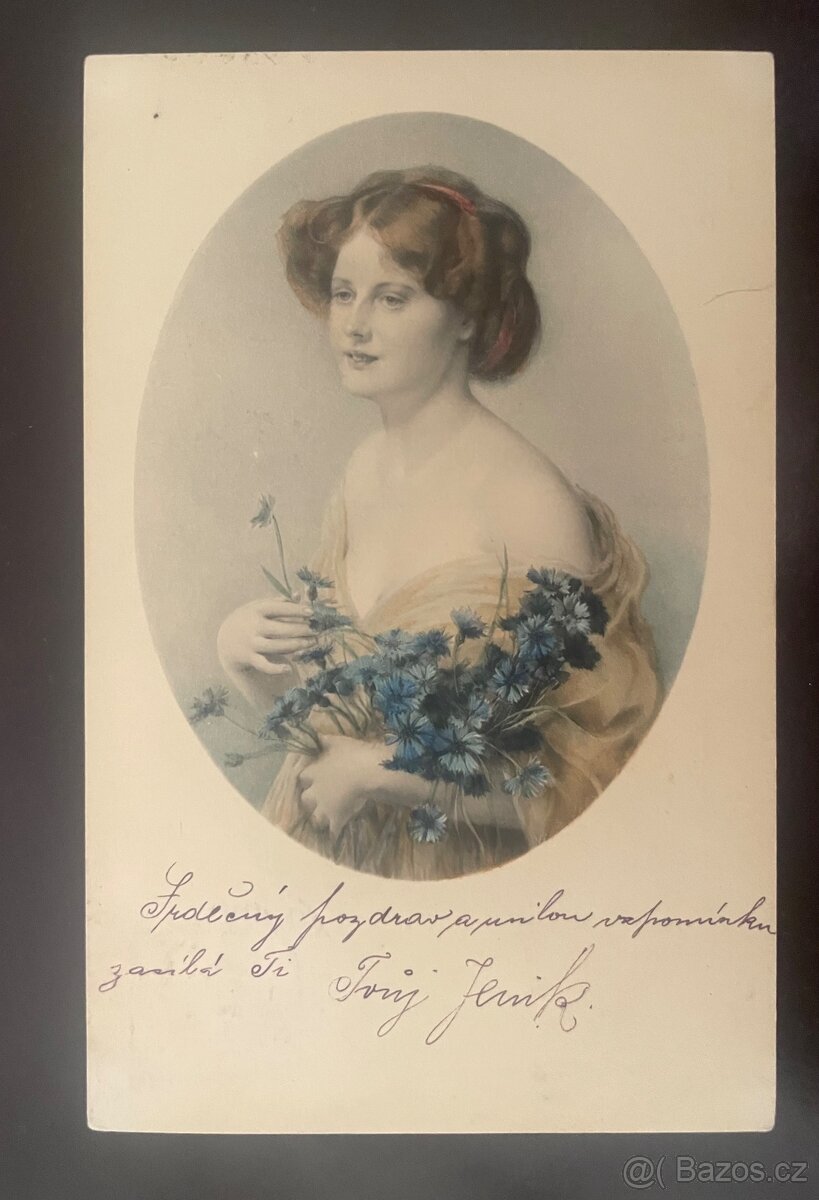 Srdečný pozdrav a milou vzpomínku
zasílá Ti Tvůj Jeník.
@( Bazos.cz